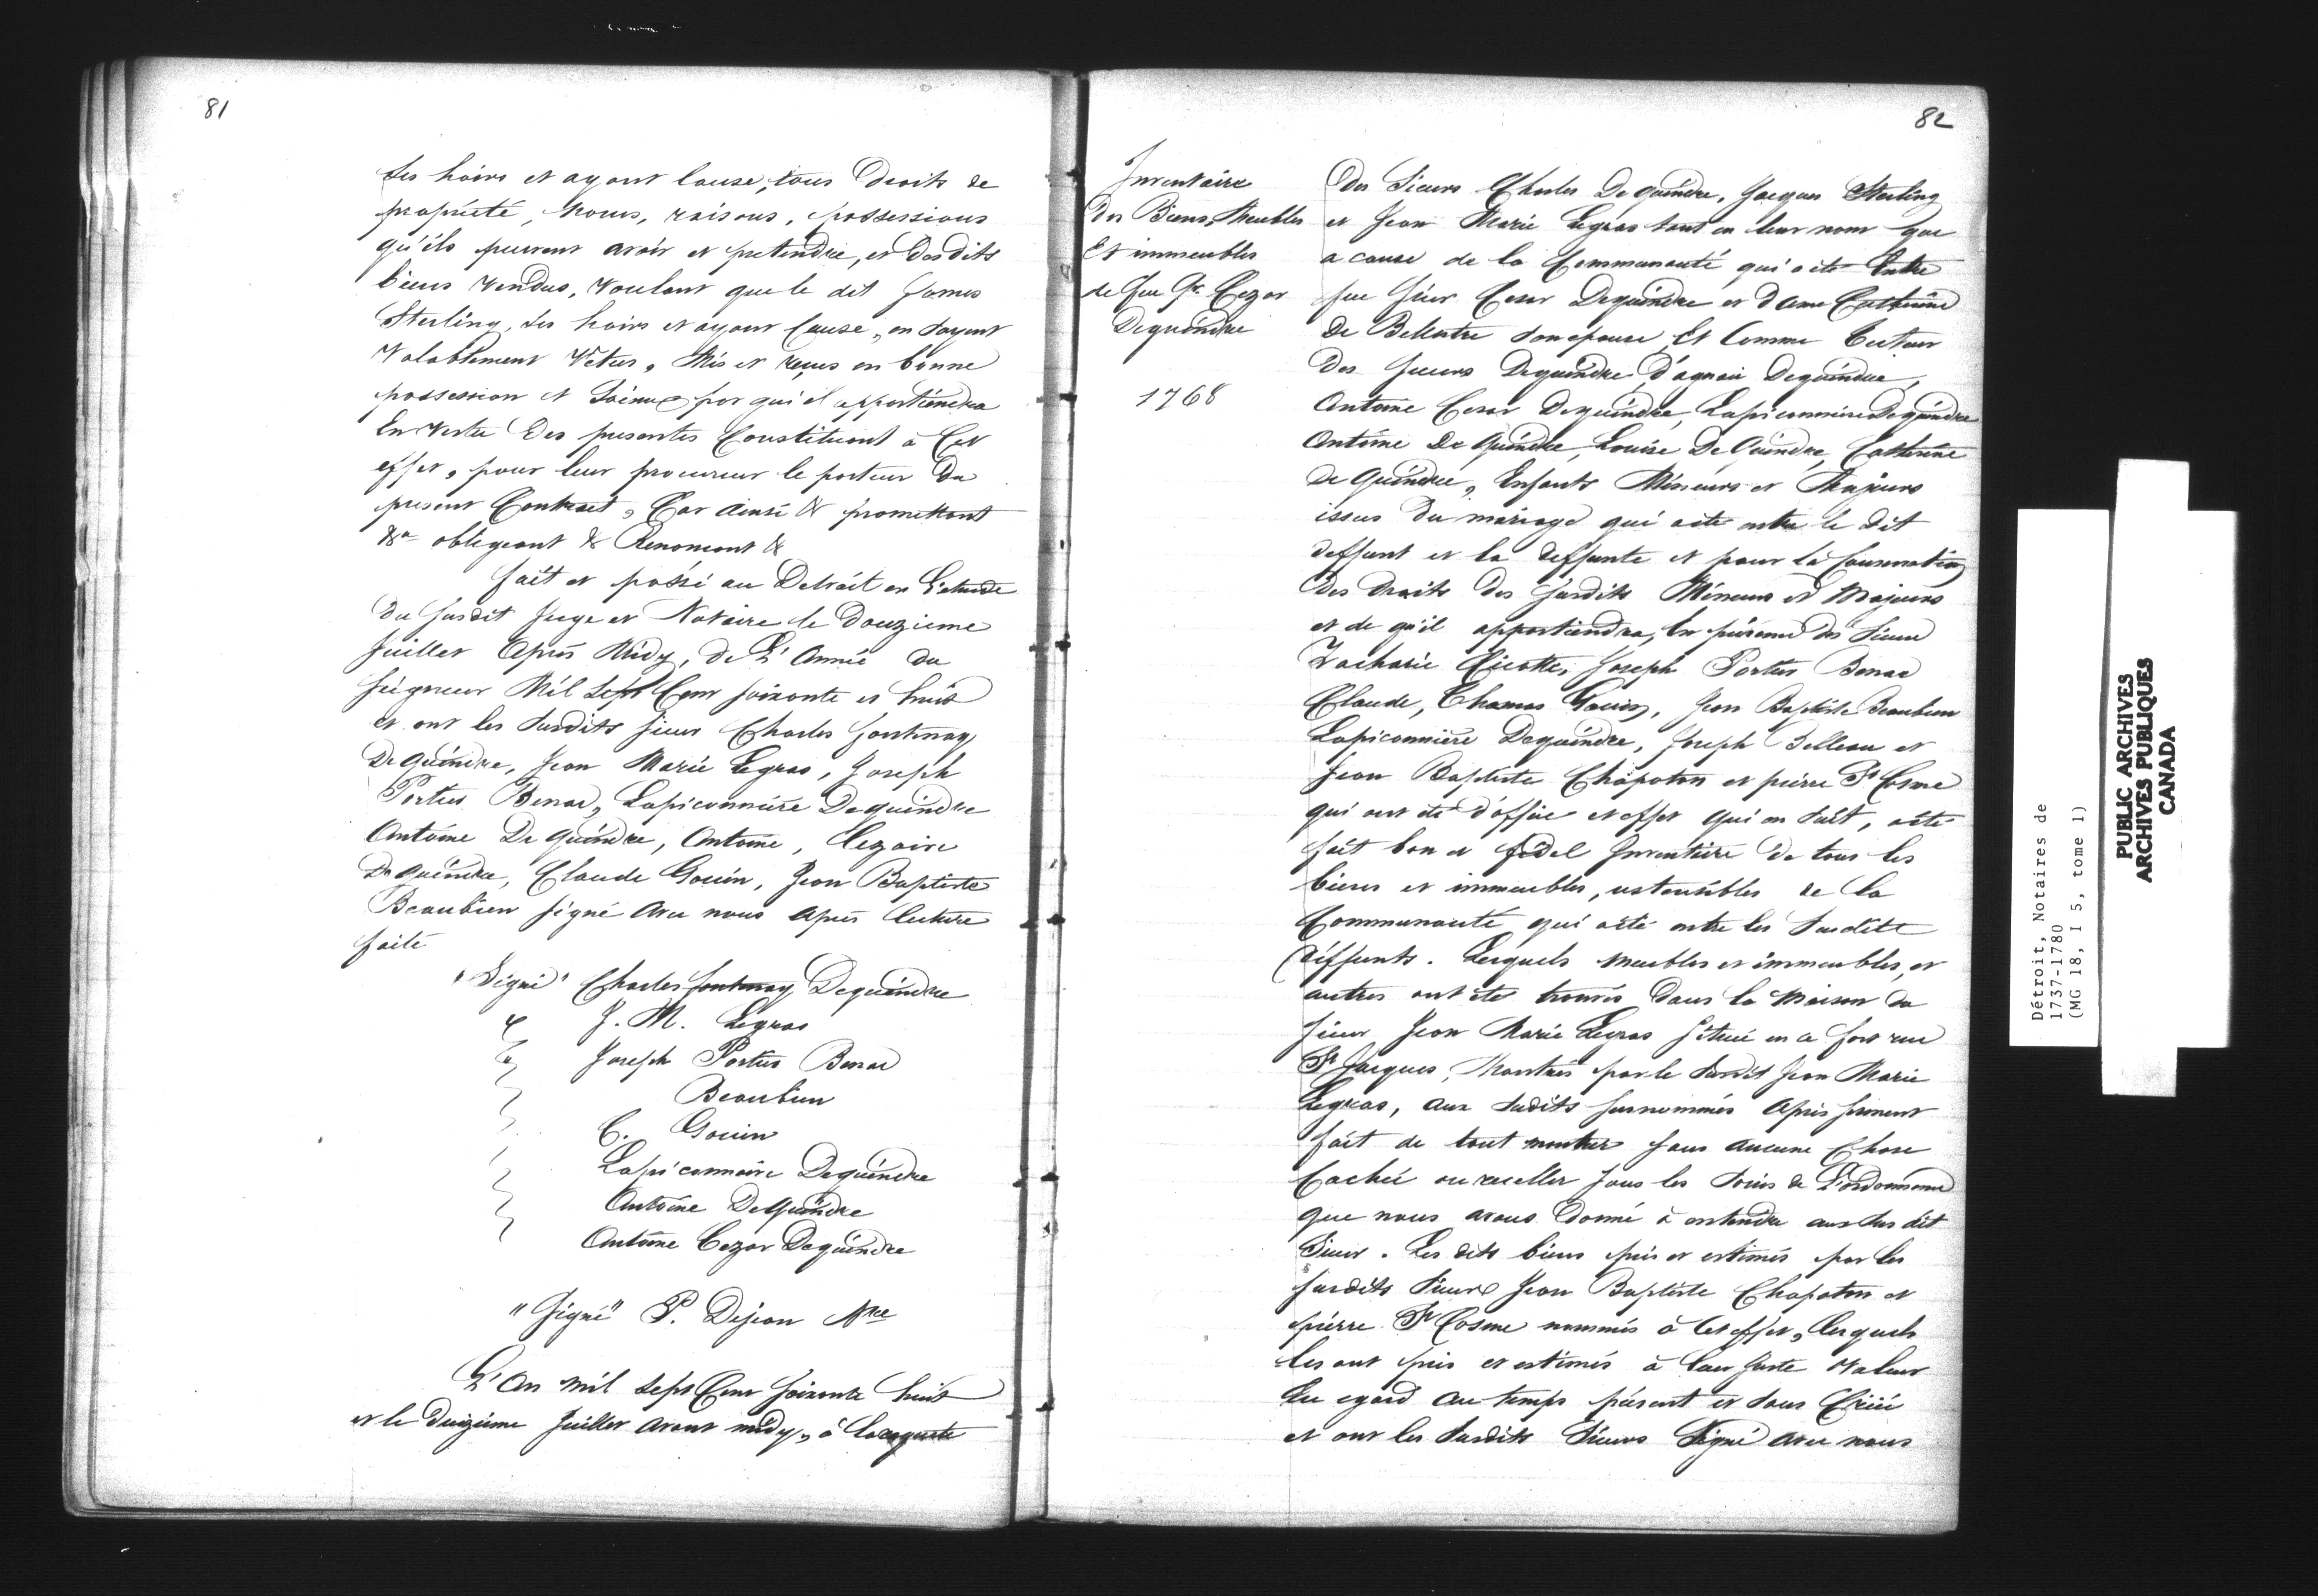 81
ses hoirs et ayant cause, tous Droits de
propriété, noms, raisons, possessions
qu'ils peuvent avoir et pretendre, es des dits
biens vendus, voulant que le dit James
Sterling, ses hoirs et ayant cause, en soyent
Valablement Vetus, Mis et reçus en bonne
possession et par qui il appartiendra
En vertu Des presentes Constituant à Cet
effet, pour leur procureur le porteur Du
present Contrait, Car ainsi & promettant
&a obligeant & Renoncant &
fait et passé au Detroit en L'etude
Du susdit Juge et Notaire le Douzieme
Juillet Après Midy, De L'Année du
Seigneur Mil Sept Cent soixante et huit
et ont les susdits sieurs Charles fontenay
De Quindre, Jean Marie Legras, Joseph
Portus Benac, Lapiconniere Dequindre
Antoine De Quindre, Antoine, Cezaire
De Quindre, Claude Gouin, Jean Baptiste
Beaubien signé avec nous après lecture
faite
"Signé" Charles fontenay Dequindre
J. M. Legras
Joseph Portus Benac
Beaubien
C. Gouin
Lapiconnaire Dequindre
Antoine Dequindre
Antoine Cezar Dequindre
"Signé" P. Dejean Nre
L'An mil Sept Cent soixante huit
et le Juillet avant midy, à la requete
82
Inventaire
Des Biens, Meubles
Et immeubles
de feu Sr Cezar
Dequindre
1768
Des Sieurs Charles De Quindre, Jacques Sterling
et Jean Marie Legras tant en leur nom que
a cause de la Communauté qui a ete Entre
feu sieur Cesar Dequindre et Dame Catherine
De Bellestre son epouse, Et Comme Tuteur
Des Sieurs Dequindre, Dequindre,
Antoine Cesar Dequindre, Lapiconniere Dequindre
Antoine De Quindre, Louise De Quindre, Catherine
De Quindre, Enfants Mineurs et Majeurs
issus Du mariage qui a ete entre le Dit
deffunt et la deffunte et pour la Conservation
Des Droits Des susdits Mineurs et Majeurs
et de qu'il appartiendra, En présence des Sieurs
Zacharie Cicotte, Joseph Portus Benac
Claude, Thomas Gouin, Jean Baptiste Beaubien
Lapiconniere Dequindre, Joseph Belleau et
Jean Baptiste Chapoton et pierre St Cosme
qui ont été d'office et effet qui en suit, a été
fait bon et fidel Inventaire De tous les
biens et immeubles, ustensibles de la
Communauté qui a été entre les susdits
Deffunts. Lesquels meubles et immeubles, et
autres ont ete trouvés Dans la Maison du
sieur Jean Marie Legras située en ce fort rue
St Jacques, Montrés par le susdit Jean Marie
Legras, aux sudits surnommés Après serment
fait de tout montrer sans aucune Chose
Cachée ou receller sous les de L'ordonnance
que nous avons Donné à entendre aux sus dit
Sieur. Les dits biens pris et estimés par les
susdits sieurs Jean Baptiste Chapoton et
pierre St Cosme nommés à Cet effet, lesquels
les ont pris et estimés à leur juste Valeur
Eu egard au temps présent et sans Criée
et ont les Susdits Sieurs Signé avec nous
Détroit, Notaires de
1737-1780
(MG 18, I 5, tome 1)
PUBLIC ARCHIVES
ARCHIVES PUBLIQUES
CANADA